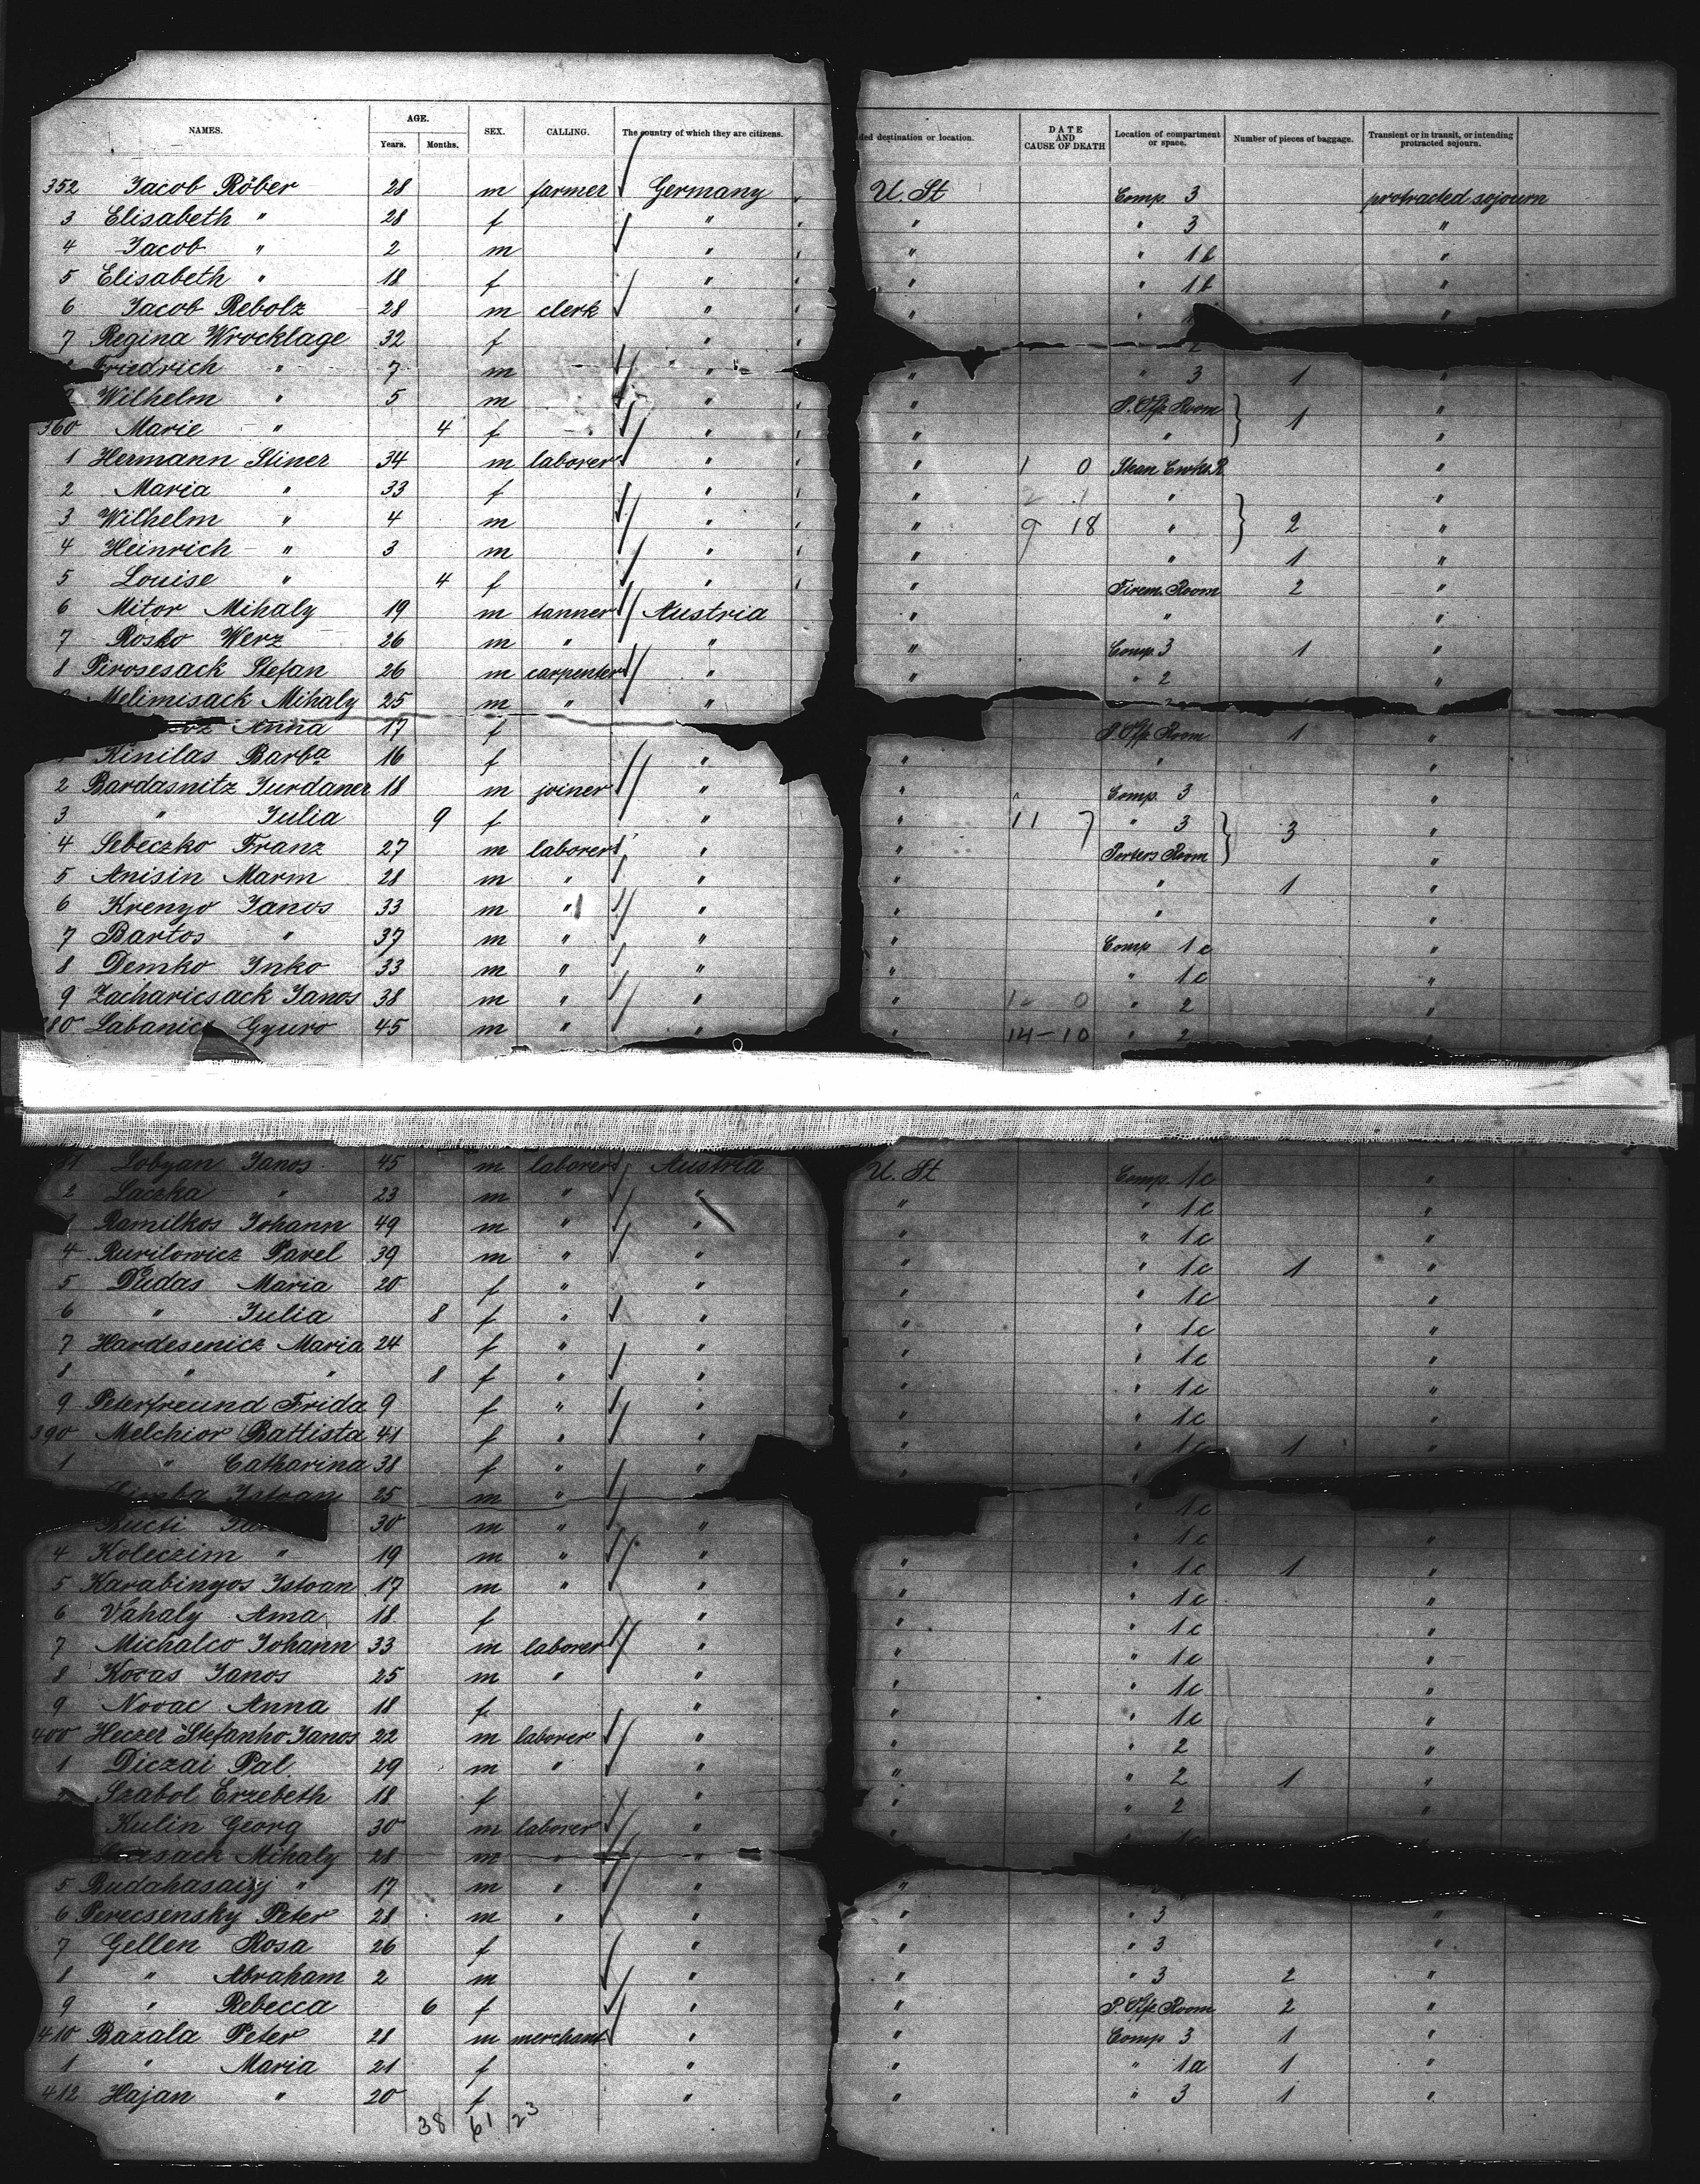 NAMES. AGE. Years. Months. SEX. CALLING. The country of which they are citizens. ded destination or location. DATE AND CAUSE OF DEATH Location of compartment or space. Number of pieces of baggage. Transient or in transit, or intending protracted sojourn.
352 Jacob Röber 28 m farmer Germany U. St Comp. 3 protracted sojourn
3 Elisabeth " 28 f " " " 3 "
4 Jacob " 2 m " " " 1b "
5 Elisabeth " 18 f " " " 1b "
6 Jacob Rebolz 28 m clerk " " " "
7 Regina Wrocklage 32 f "
Friedrich " 7 m " " " 3 1 "
Wilhelm " 5 m " " P. Off. Room 1 "
360 Marie " 4 f " " " "
1 Hermann Stiner 34 m laborer " " 1 0 "
2 Maria " 33 f " " " "
3 Wilhelm " 4 m " " 9 18 " 2 "
4 Heinrich " 3 m " " " 1 "
5 Louise " 4 f " " Firem. Room 2 "
6 Mitor Mihaly 19 m tanner Austria " " "
7 Rosko Werz 26 m " " " Comp. 3 1 "
8 Pirosesack Stefan 26 m carpenter " " " 2 "
Melimisack Mihaly 25 m " "
Anna 17 f P. Off. Room 1 "
1 Kinilas Barba 16 f " " " "
2 Bardasnitz Jurdaner 18 m joiner " " Comp. 3 "
3 " Julia 9 f " " 11 7 " 3 3 "
4 Sebeczko Franz 27 m laborer " " Porters Room "
5 Anisin Marm 28 m " " " " 1 "
6 Krenyo Janos 33 m " " " " "
7 Bartos " 37 m " " " Comp 1c "
8 Demko Inko 33 m " " " " 1c "
9 Zacharicsack Janos 38 m " " " " 2 "
380 Labanics Gyuro 45 m " " " 14-10 " 2 "
81 Lobyan Janos 45 m laborer Austria U. St Comp. 1c "
2 Laczka " 23 m " " " " 1c "
3 Ramilkos Johann 49 m " " " " 1c "
4 Rurilowicz Pavel 39 m " " " " 1c 1 "
5 Dudas Maria 20 f " " " " 1c "
6 " Julia 8 f " " " " 1c "
7 Hardesenicz Maria 24 f " " " " 1c "
8 " " 8 f " " " " 1c "
9 Peterfreund Frida 9 f " " " " 1c "
390 Melchior Battista 41 f " " " " 1c 1 "
1 " Catharina 38 f " " " "
Istvan 25 m " " 1c
Ructi 30 m " " " 1c "
4 Koleczim " 19 m " " " " 1c 1 "
5 Karabinyos Istvan 17 m " " " " 1c "
6 Váhaly Ama 18 f " " " 1c "
7 Michalco Johann 33 m laborer " " " 1c "
8 Kovas Janos 25 m " " " " 1c "
9 Novac Anna 18 f " " " 1c "
400 Heczer Stefanho Janos 22 m laborer " " " 2 "
1 Diczai Pal. 29 m " " " " 2 1 "
2 Szabol Erzebeth 18 f " " " 2 "
Kulin Georg 30 m laborer " " " 1c "
Mihaly 28 m " "
5 Budahasaizj " 17 m " " "
6 Perecsensky Peter 28 m " " " " 3 "
7 Gellen Rosa 26 f " " " 3 "
8 " Abraham 2 m " " " 3 2 "
9 " Rebecca 6 f " " P. Off. Room 2 "
410 Bazala Peter 28 m merchant " " Comp 3 1 "
1 " Maria 21 f " " " 1a 1 "
412 Hajan " 20 f " " " 3 1 "
38 61 23